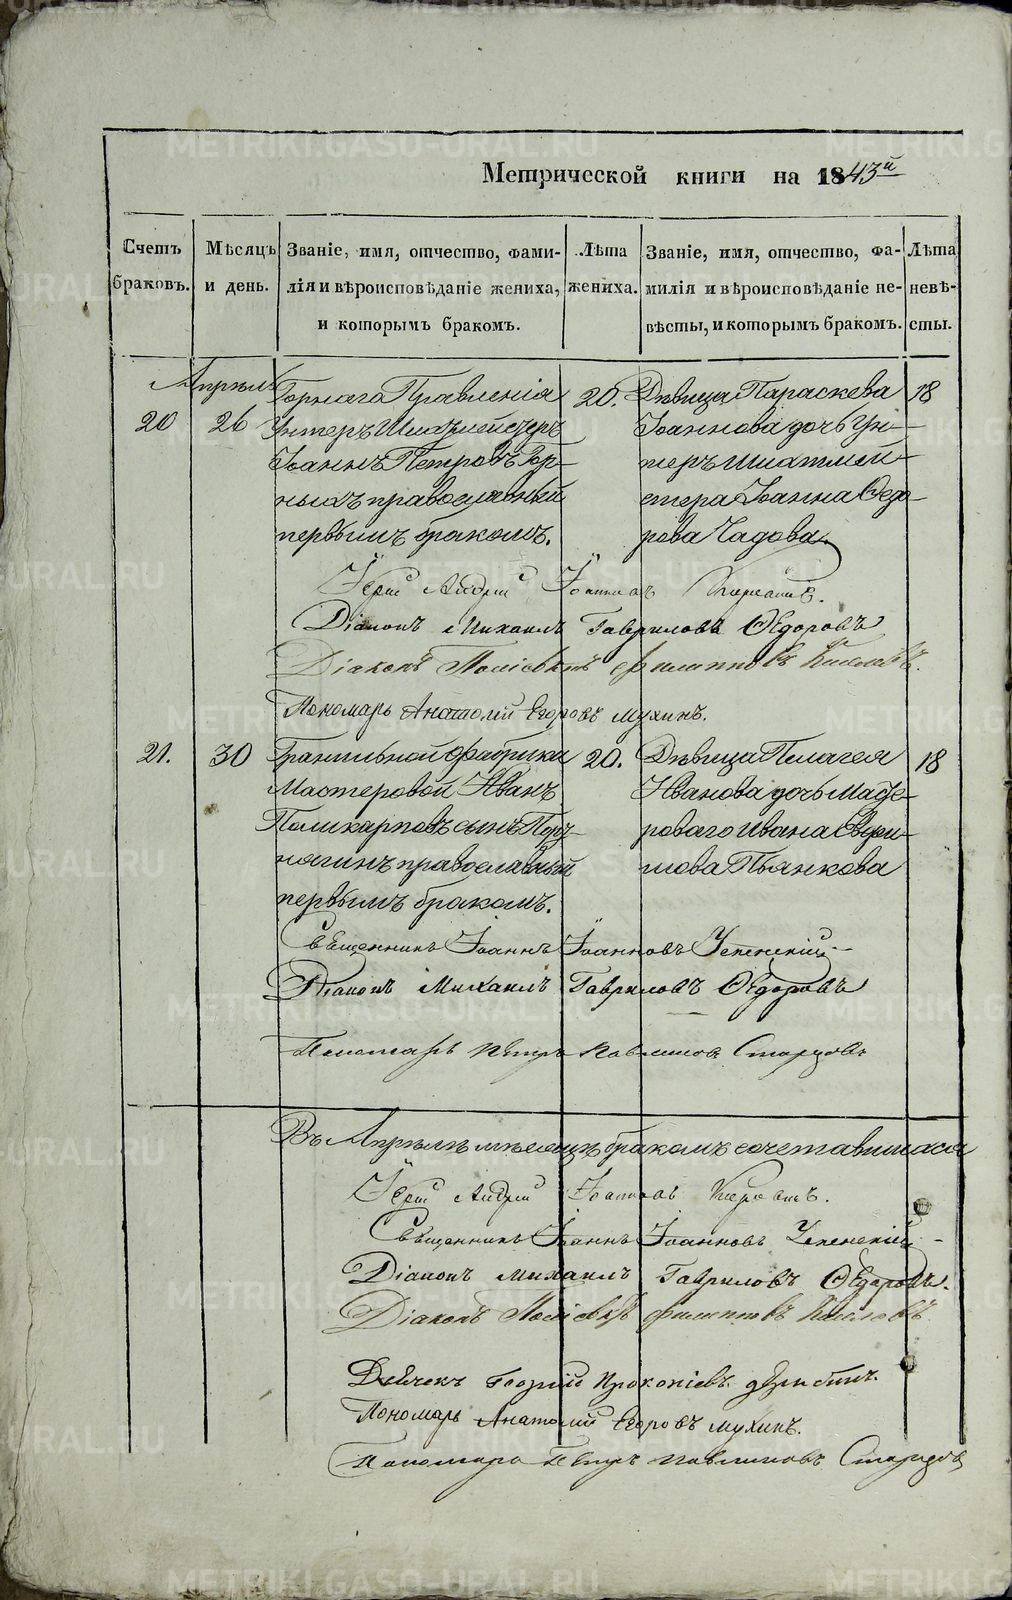 Метрической книги на 1843й
Счетъ браковъ.
Мѣсяцъ и день.
Званіе, имя, отчество, фами-
лія и вѣроисповѣданіе жениха,
и которымъ бракомъ.
Лѣта жениха.
Званіе, имя, отчество, фа-
милія и вѣроисповѣданіе не-
вѣсты, и которымъ бракомъ.
Лѣта невѣ-
сты.
Апрѣль
20
26
Горнаго Правленія
Унтеръ Шихтмейстеръ
Іоаннъ Петровъ Гор-
ныхъ православный
первымъ бракомъ.
20.
Дѣвица Параскева
Іоаннова дочь Ун-
теръ шихтмей-
стера Іоанна Ѳедо-
рова Чадова.
18
Іерей Андрей Іоанновъ
Діаконъ Михаилъ Гавриловъ Ѳедоровъ
Діаконъ Филипповъ
Пономарь Анатолій Егоровъ Мухинъ.
21.
30
Гранильной Фабрики
Мастеровой Иванъ
Поликарповъ сынъ
православный
первымъ бракомъ.
20.
Дѣвица Пелагея
Иванова дочь Масте-
роваго Ивана
Пьянкова
18
Священникъ Іоаннъ Іоанновъ Успенскій
Діаконъ Михаилъ Гавриловъ Ѳедоровъ
Пономарь Петръ Павлиновъ Старцовъ
Въ Апрѣлѣ мѣсяцѣ бракомъ сочетавшихся
Іерей Андрей Іоанновъ
Священникъ Іоаннъ Іоанновъ Успенскій
Діаконъ Михаилъ Гавриловъ Ѳедоровъ.
Діаконъ Филипповъ
Дьячекъ Георгій Прокопіевъ
Пономарь Анатолій Егоровъ Мухинъ.
Пономарь Петръ Павлиновъ Старцовъ
METRIKI.GASO-URAL.RU